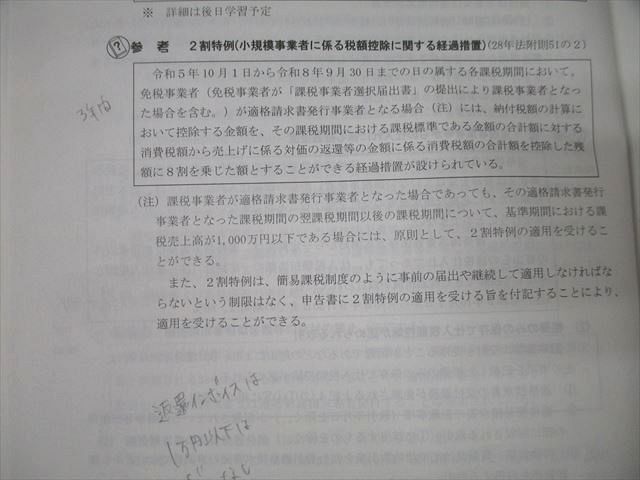 ※ 詳細は後日学習予定
参 考 2割特例(小規模事業者に係る税額控除に関する経過措置)(28年法附則51の2)
令和5年10月1日から令和8年9月30日までの日の属する各課税期間において、
免税事業者(免税事業者が「課税事業者選択届出書」の提出により課税事業者となっ
た場合を含む。)が適格請求書発行事業者となる場合(注)には、納付税額の計算に
おいて控除する金額を、その課税期間における課税標準である金額の合計額に対する
消費税額から売上げに係る対価の返還等の金額に係る消費税額の合計額を控除した残
額に8割を乗じた額とすることができる経過措置が設けられている。
3年内
(注) 課税事業者が適格請求書発行事業者となった場合であっても、その適格請求書発行
事業者となった課税期間の翌課税期間以後の課税期間について、基準期間における課
税売上高が1,000万円以下である場合には、原則として、2割特例の適用を受けるこ
とができる。
また、2割特例は、簡易課税制度のように事前の届出や継続して適用しなければな
らないという制限はなく、申告書に2割特例の適用を受ける旨を付記することにより、
適用を受けることができる。
返還インボイスは
1万円以下は
なし